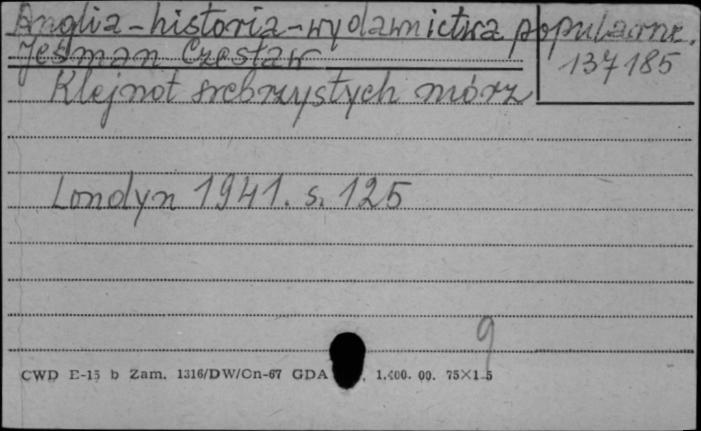 Anglia - historia - wydawnictwa popularne.
Jeśman Czesław
137185
Klejnot srebrzystych mórz
Londyn 1941. s. 125
9
CWD E-15 b Zam. 1316/DW/On-67 GDA 1.400. 00. 75×1 5